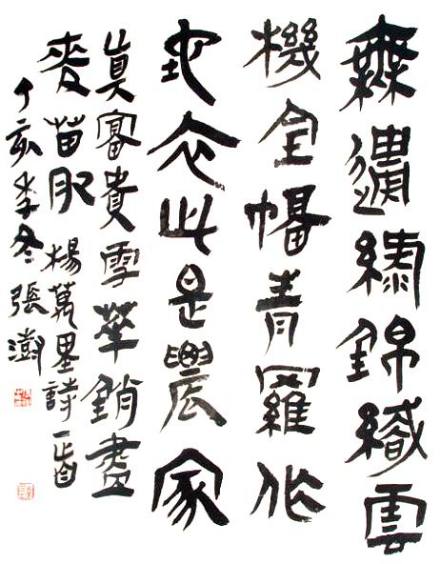 無邊綠錦織雲
機全幅青羅作
地衣此是農家
真富貴雪華銷盡
麥苗肥 楊萬里詩一首
丁亥季冬 張澍